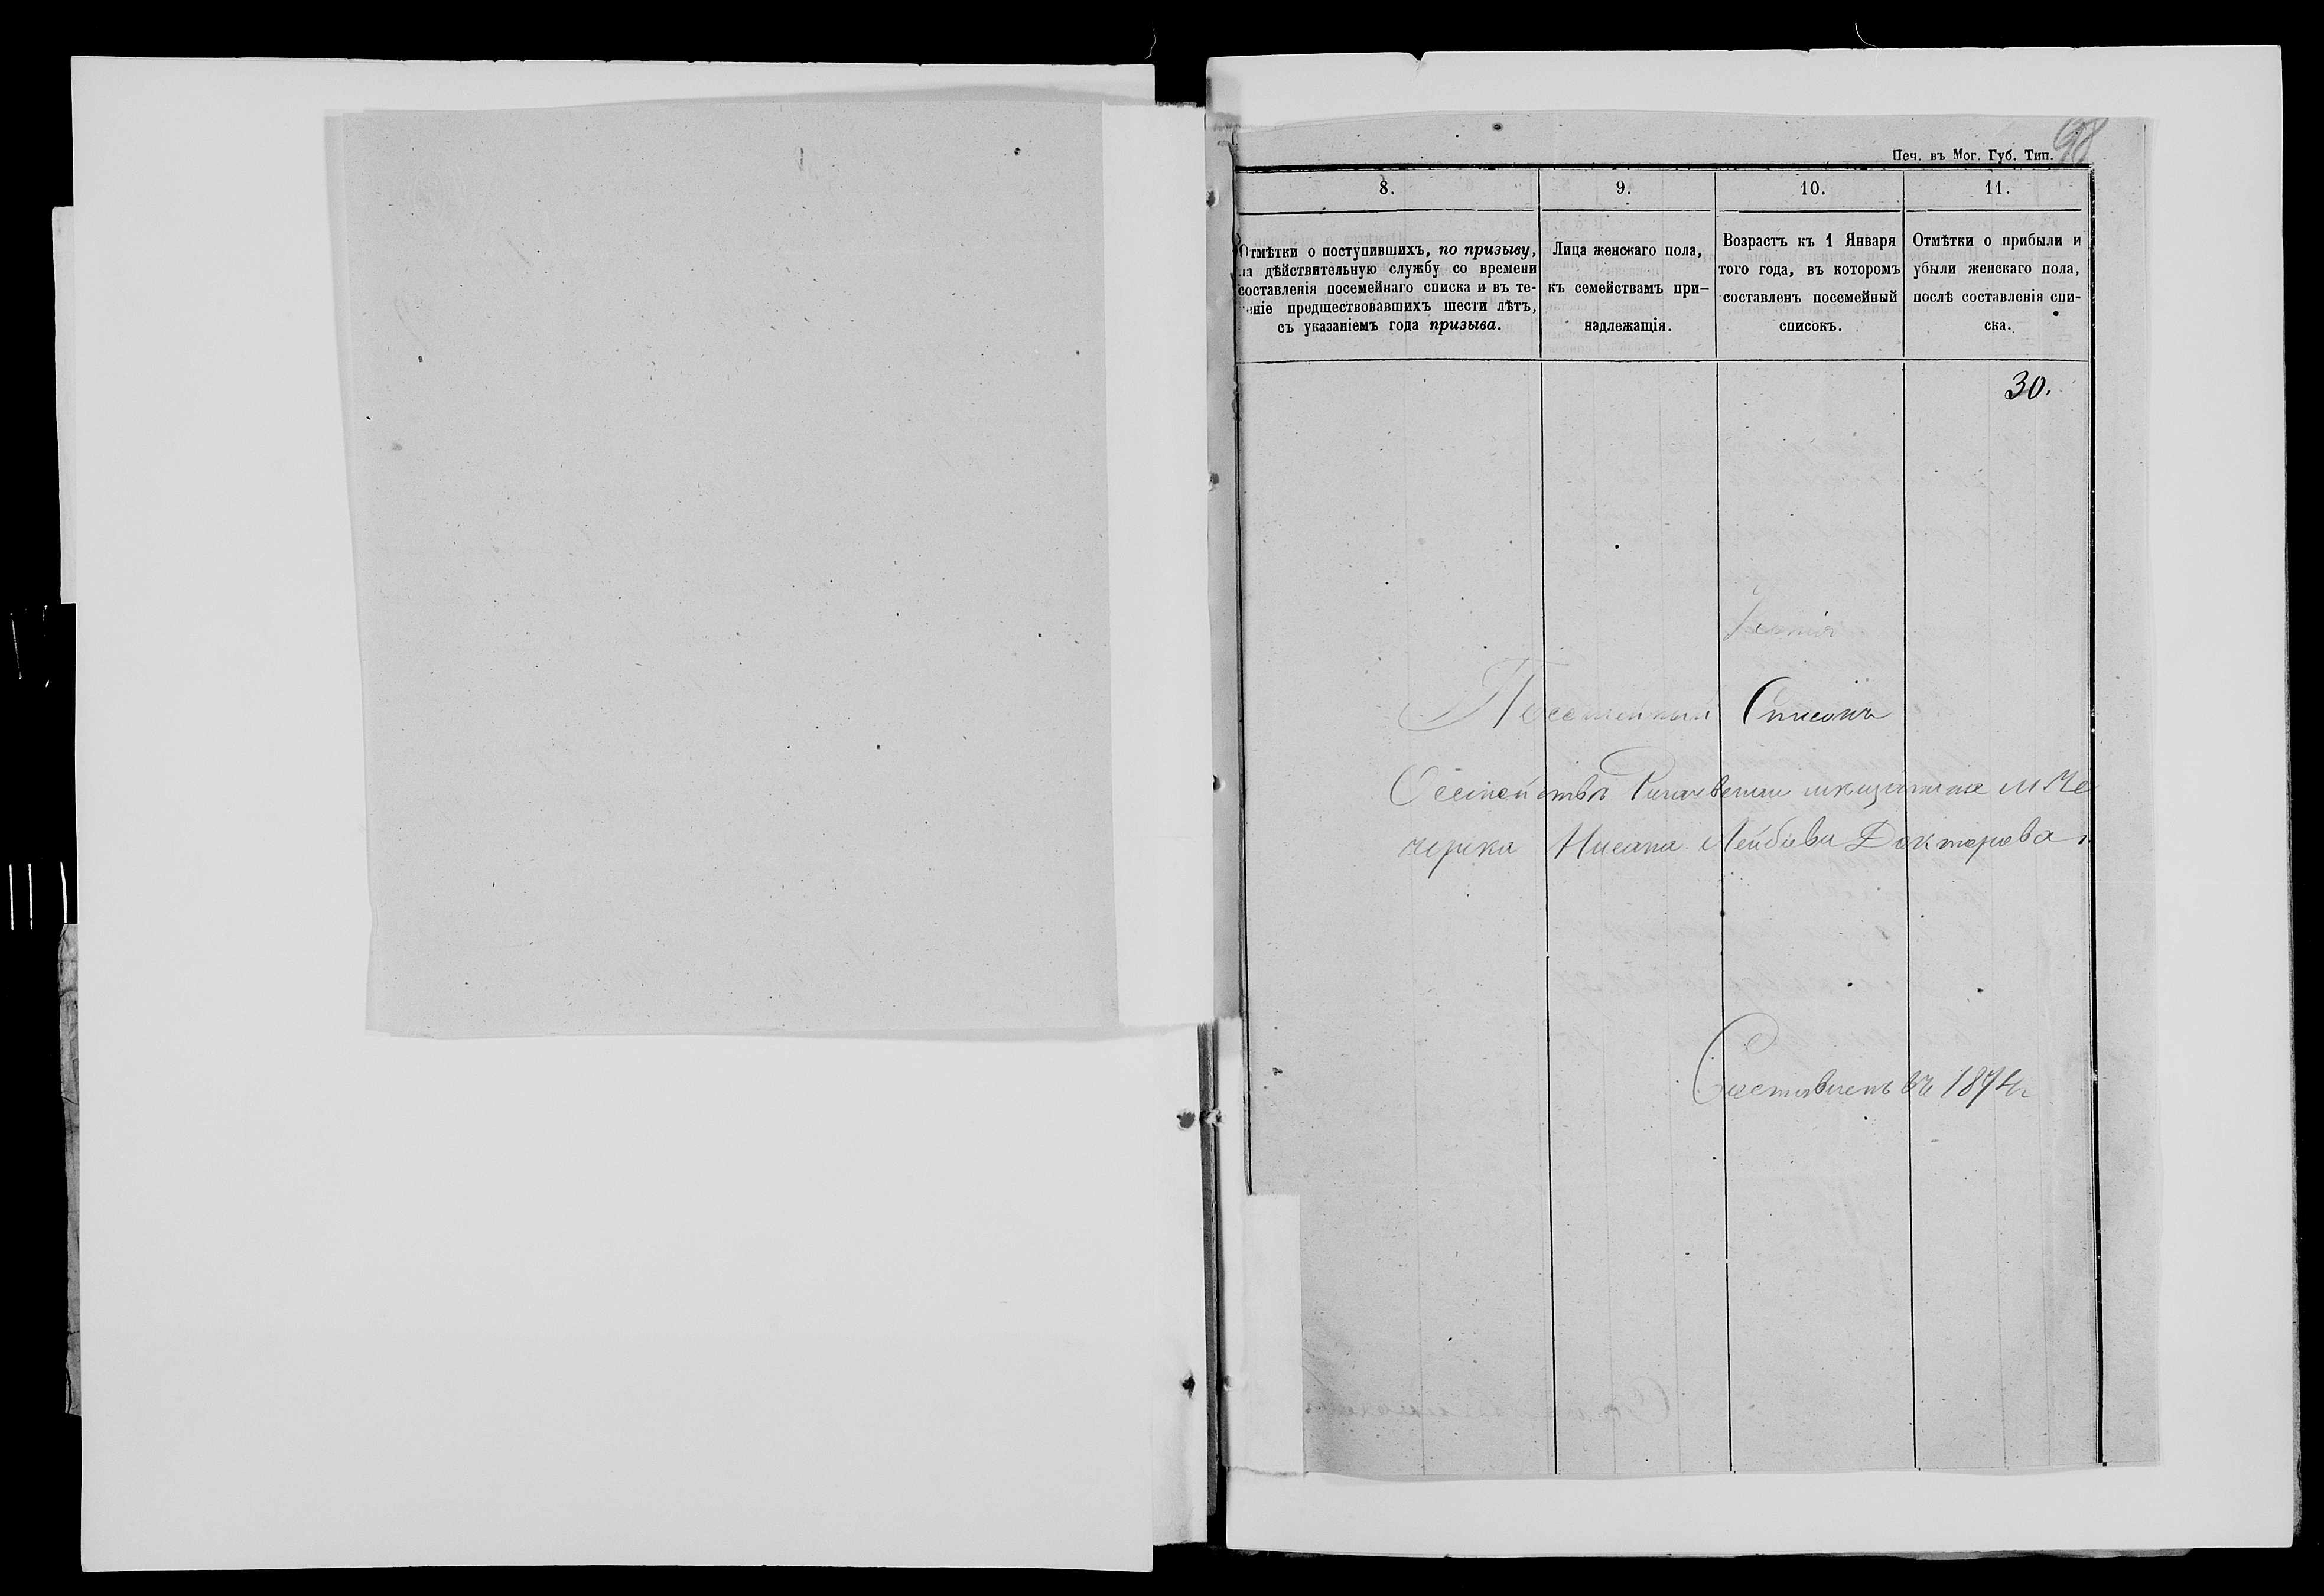 98
Печ. въ Мог. Губ. Тип.
8.
9.
10.
11.
Отмѣтки о поступившихъ, по призыву,
на дѣйствительную службу со времени
составленія посемейнаго списка и въ те-
ченіе предшествовавшихъ шести лѣтъ,
съ указаніемъ года призыва.
Лица женскаго пола,
къ семействамъ при-
надлежащія.
Возрастъ къ 1 Января
того года, въ которомъ
составленъ посемейный
списокъ.
Отмѣтки о прибыли и
убыли женскаго пола,
послѣ составленія спи-
ска.
30.
Копія
Посемейный Списокъ
Семейства мѣщанина м Че
черска Нисана Лейбова Докторова.
Составленъ въ 1874г